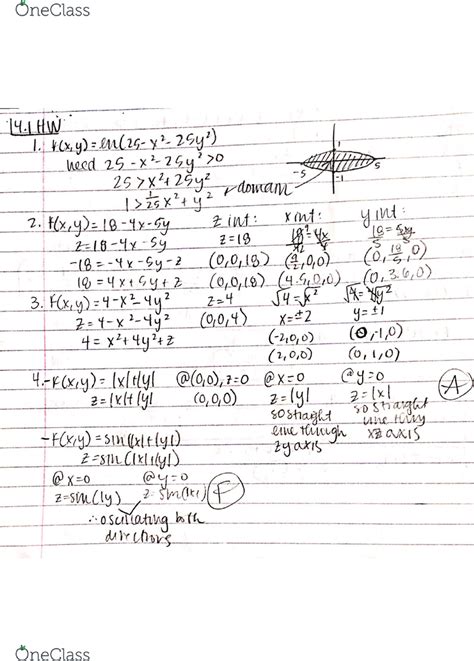 OneClass
14.1 HW
1. f(x,y) = ln(25-x²-25y²)
need 25-x²-25y²>0
25 > x²+25y²
1 > 1/25 x² + y²
domain
-5 5
1
-1
2. f(x,y) = 18-4x-5y
z = 18-4x-5y
-18 = -4x-5y-z
18 = 4x+5y+z
z int:
z=18
(0,0,18)
(0,0,18)
x int:
(4.5,0,0)
y int:
18 = 5y
(0, 18/5, 0)
(0, 3.6, 0)
3. f(x,y) = 4-x²-4y²
z = 4-x²-4y²
4 = x²+4y²+z
z=4
(0,0,4)
√4=√x²
x=±2
(-2,0,0)
(2,0,0)
√4=√4y²
y=±1
(0,-1,0)
(0,1,0)
4. -f(x,y) = |x|+|y|
z=|x|+|y|
@(0,0), z=0
(0,0,0)
@x=0
z=|y|
so straight
line through
zy axis
@y=0
z=|x|
so straight
line thru
xz axis
A
-f(x,y) = sin(|x|+|y|)
z=sin(|x|+|y|)
@x=0
z=sin(|y)
@y=0
z=sin(|x|)
F
∴ oscillating both
directions
OneClass